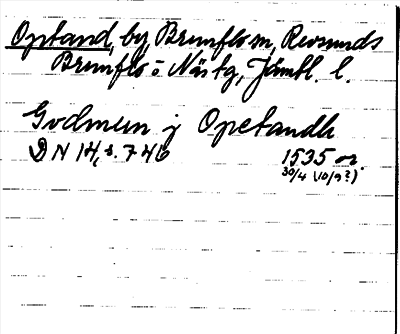 Optand, by, Brunflo sn, Revsunds
Brunflo o Näs tg, Jämtl. l.
Gudmun j Opetandh
DN 14, s. 746 1535 or
30/4 (10/9?)